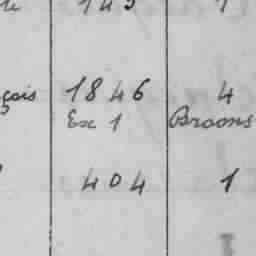 143 1
çois 1846 4
Ex 1 Broons
404 1